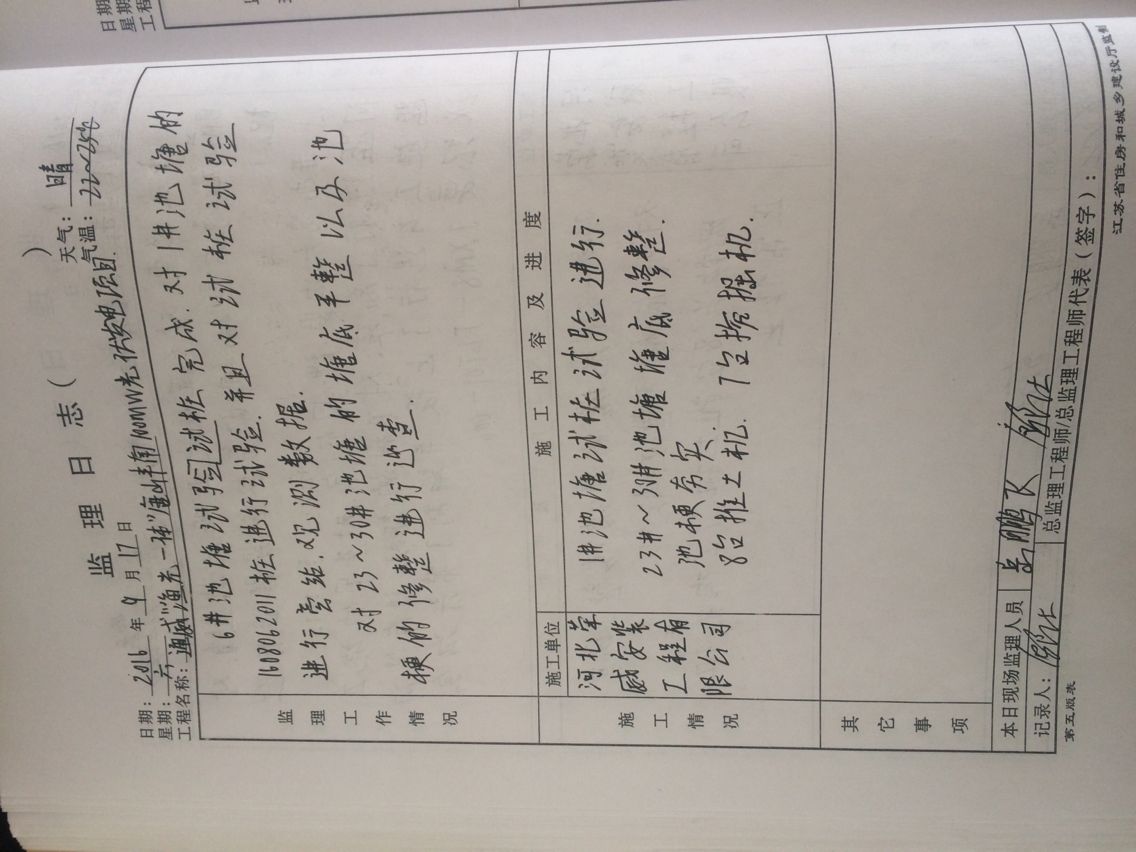 监理日志（ ）
日期：2016年9月17日 天气：晴
星期：六 气温：22~28℃
工程名称："渔光一体" 光伏发电项目
监理工作情况
6#池塘试验试桩完成.对1#池塘的
1608062011桩进行试验.并且对试桩试验
进行旁站.观测数据.
对23~30#池塘的塘底平整以及池
梗的修整进行巡查.
施工情况
施工单位
施工内容及进度
河北荣
威安装
工程有
限公司
1#池塘试桩试验进行.
23#~30#池塘塘底修整.
池梗夯实.
8台推土机.7台挖掘机.
其它事项
本日现场监理人员 吴鹏飞
记录人： 总监理工程师/总监理工程师代表（签字）：
第五版表 江苏省住房和城乡建设厅监制
日期
星期
工程